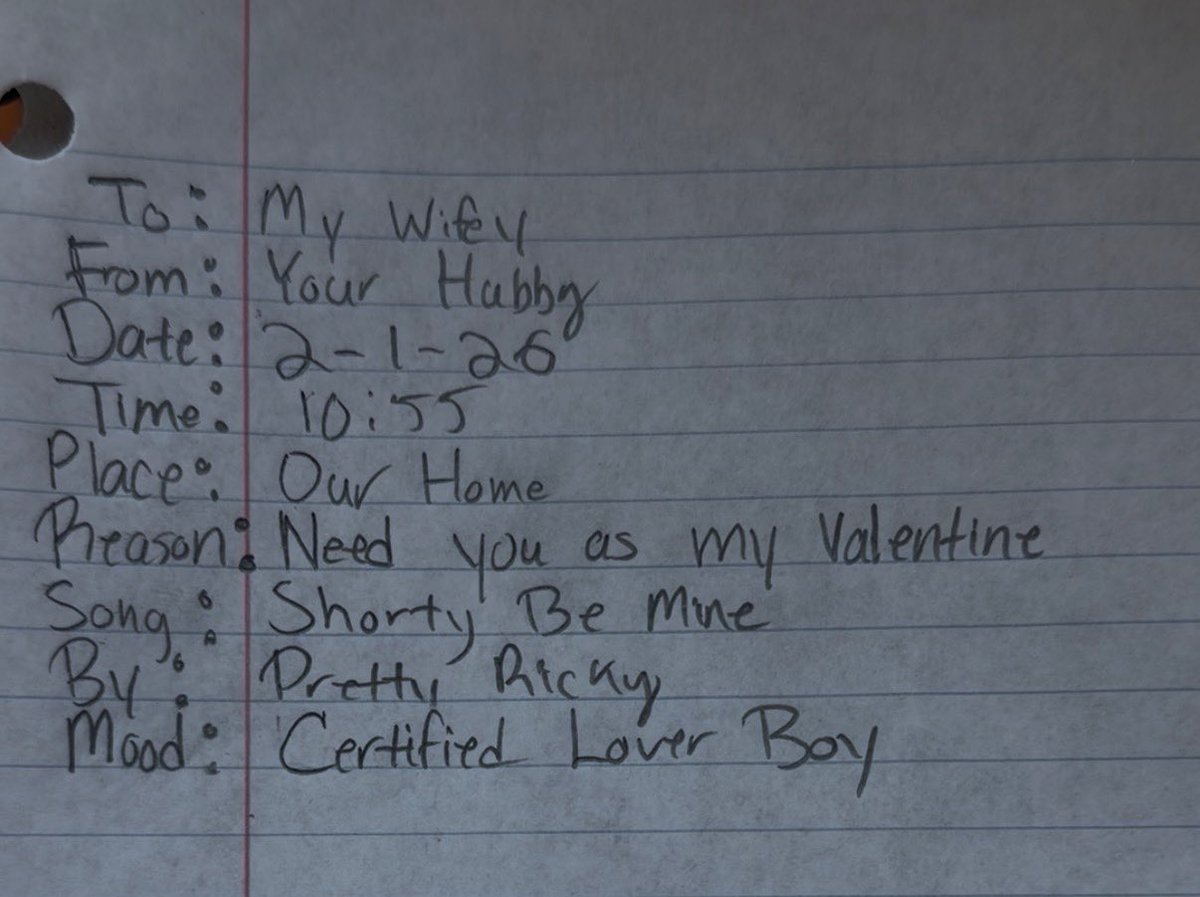 To: My Wifey
From: Your Hubby
Date: 2-1-26
Time: 10:55
Place: Our Home
Reason: Need you as my Valentine
Song: Shorty Be Mine
By: Pretty Ricky
Mood: Certified Lover Boy